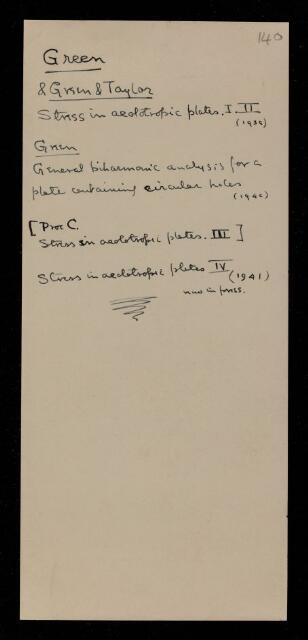 140
Green
& Green & Taylor
Stress in aeolotropic plates. I. II
(1939)
Green
General biharmonic analysis for a
plate containing circular holes
(1940)
[Proc C.
Stress in aeolotropic plates. III ]
Stress in aeolotropic plates IV (1941)
now in press.